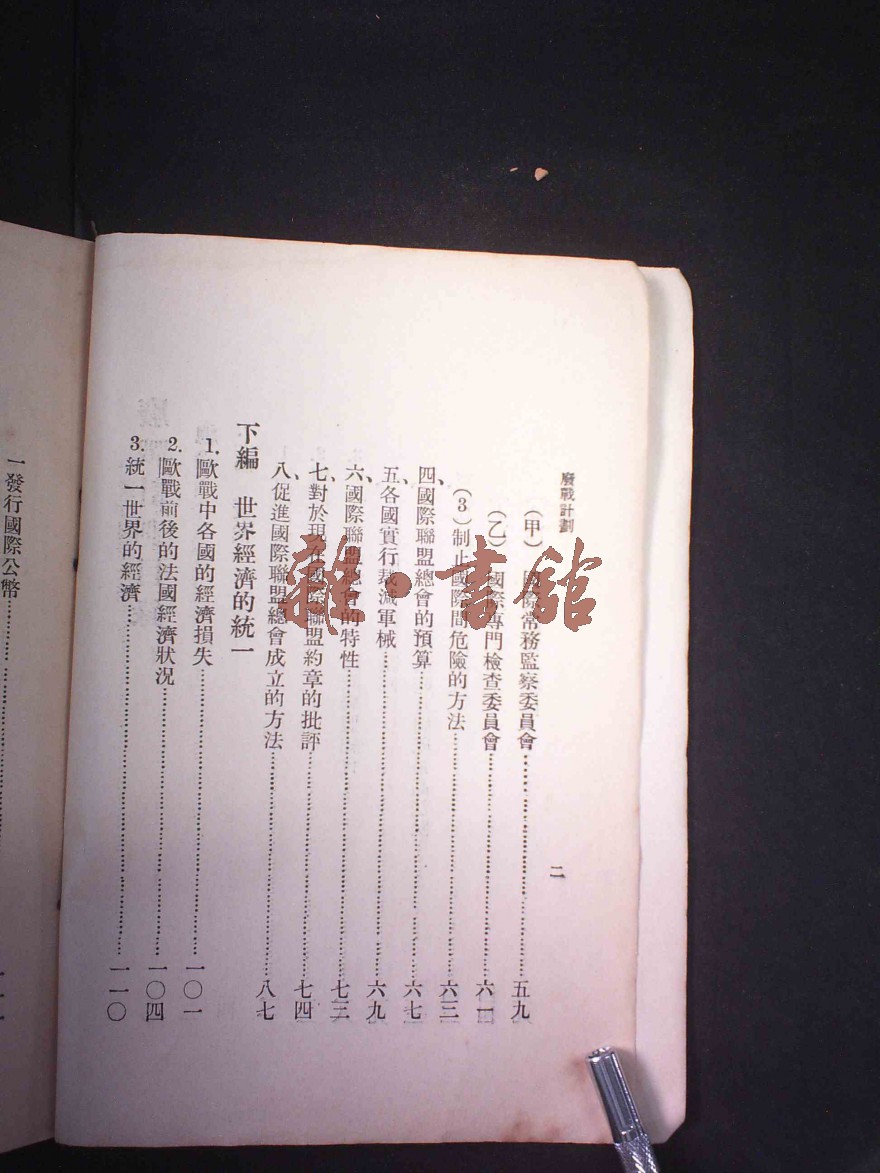 廢戰計劃
二
(甲) 國際常務監察委員會……五九
(乙) 國際專門檢查委員會……六一
(3)制止國際間危險的方法……六三
四、國際聯盟總會的預算……六七
五、各國實行裁減軍械……六九
六、國際聯盟總會的特性……七三
七、對於現在國際聯盟約章的批評……七四
八、促進國際聯盟總會成立的方法……八七
下編 世界經濟的統一
1.歐戰中各國的經濟損失……一〇一
2.歐戰前後的法國經濟狀況……一〇四
3.統一世界的經濟……一一〇
一發行國際公幣……
雜·書館